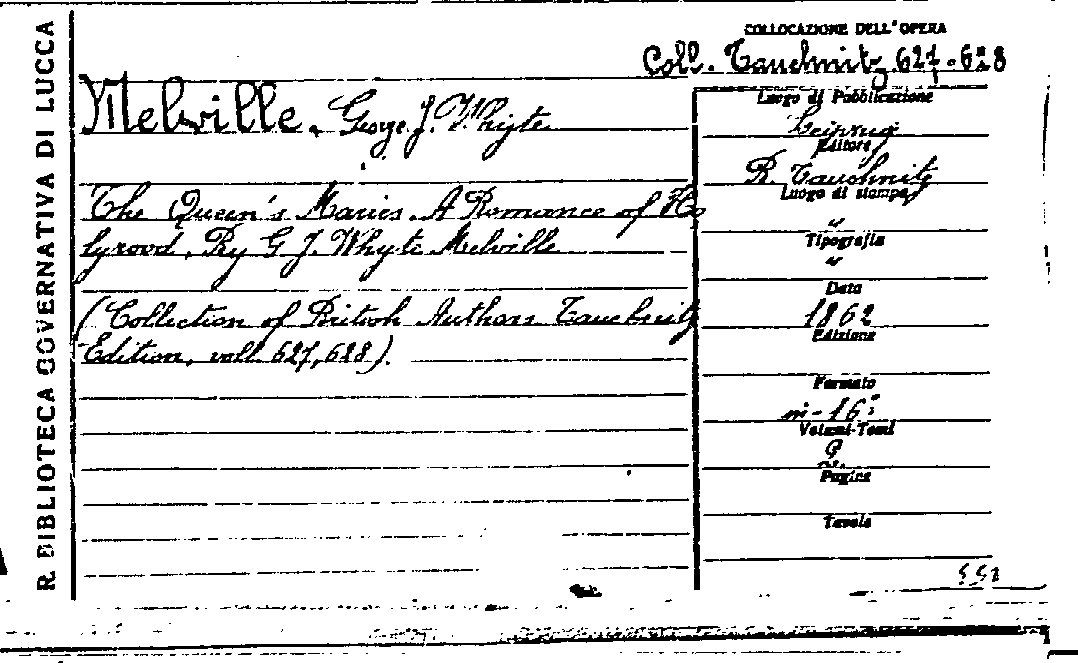 R. BIBLIOTECA GOVERNATIVA DI LUCCA
COLLOCAZIONE DELL'OPERA
Coll. Tauchnitz 627-628
Melville, George J. Whyte
The Queen's Maries. A Romance of Ho
lyrood. By G. J. Whyte Melville
(Collection of British Authors Tauchnitz
Edition, voll. 627, 628).
Luogo di Pubblicazione
Leipzig
Editore
B. Tauchnitz
Luogo di stampa
"
Tipografia
"
Data
1862
Edizione
Formato
in-16°
Volumi-Tomi
2
Pagine
Tavole